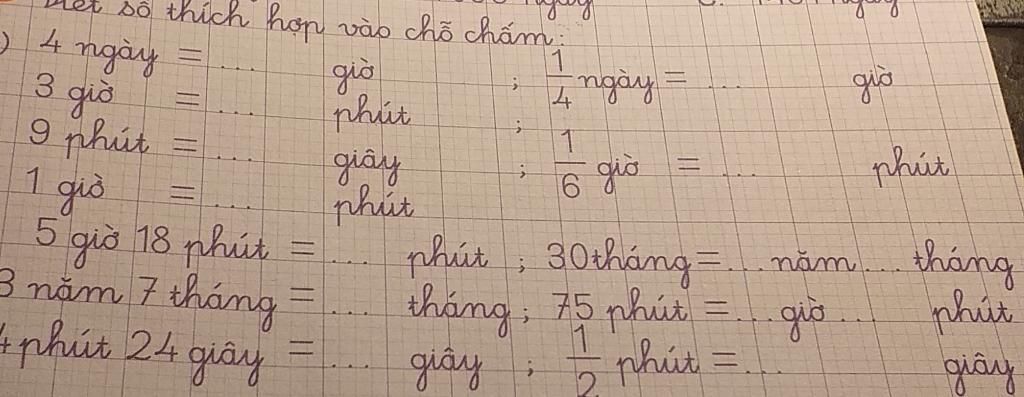 số thích hợp vào chỗ chấm:
) 4 ngày = ... giờ ; 1/4 ngày = ... giờ
3 giờ = ... phút ;
9 phút = ... giây ; 1/6 giờ = ... phút
1 giờ = ... phút
5 giờ 18 phút = ... phút ; 30 tháng = ... năm ... tháng
3 năm 7 tháng = ... tháng ; 75 phút = ... giờ ... phút
4 phút 24 giây = ... giây ; 1/2 phút = ... giây